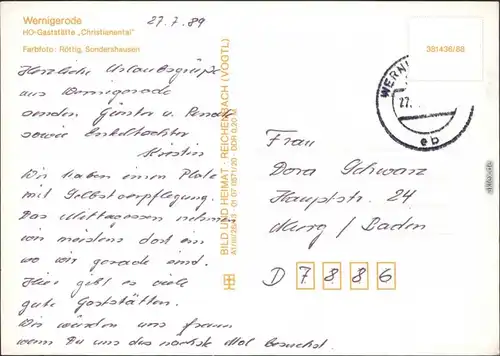 Wernigerode
HO-Gaststätte „Christianental"
Farbfoto: Röttig, Sondershausen
27.7.89
Herzliche Urlaubsgrüße
aus Wernigerode
senden Günter u.
sowie Enkeltochter
Kirstin
Wir haben einen Platz
mit Selbstverpflegung.
Das Mittagessen nehmen
wir meistens dort ein
wo wir gerade sind.
Hier gibt es viele
gute Gaststätten.
Wir würden uns freuen
wenn Du uns das nächste Mal besuchst.
BILD UND HEIMAT · REICHENBACH (VOGTL)
A1/III/26/13 01 07 0671/20 · DDR 0,20 M
381436/88
WERNI
27.
eb
Frau
Dora Schwarz
Hauptstr. 24
Murg / Baden
D 7886